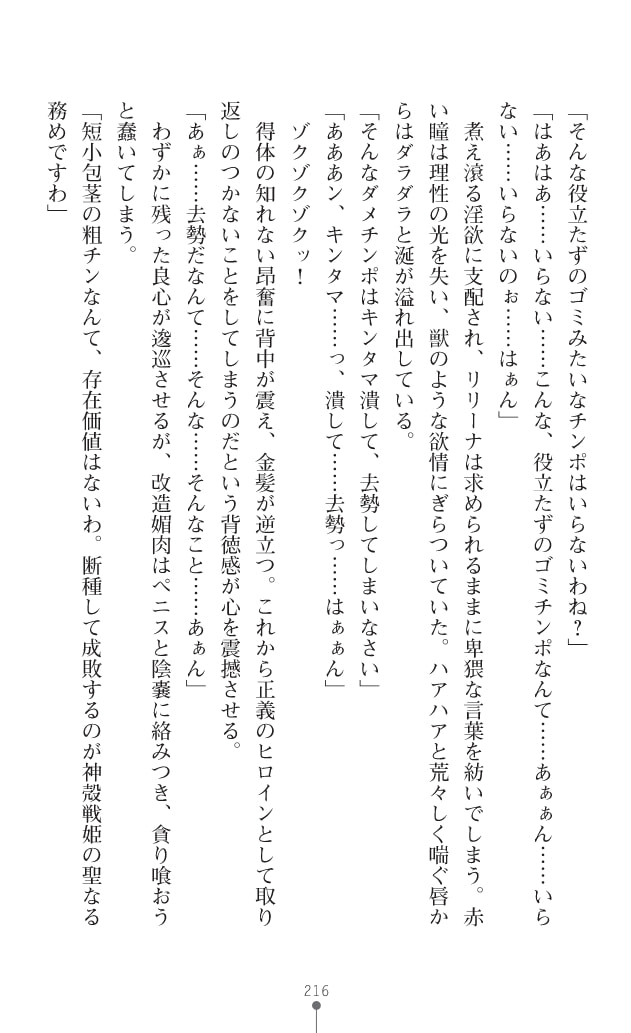 「そんな役立たずのゴミみたいなチンポはいらないわね？」
「はあはあ……いらない……こんな、役立たずのゴミチンポなんて……あぁぁん……いら
ない……いらないのぉ……はぁん」
煮え滾る淫欲に支配され、リリーナは求められるままに卑猥な言葉を紡いでしまう。赤
い瞳は理性の光を失い、獣のような欲情にぎらついていた。ハアハアと荒々しく喘ぐ唇か
らはダラダラと涎が溢れ出している。
「そんなダメチンポはキンタマ潰して、去勢してしまいなさい」
「あああン、キンタマ……っ、潰して……去勢っ……はぁぁん」
ゾクゾクゾクッ！
得体の知れない昂奮に背中が震え、金髪が逆立つ。これから正義のヒロインとして取り
返しのつかないことをしてしまうのだという背徳感が心を震撼させる。
「あぁ……去勢だなんて……そんな……そんなこと……あぁん」
わずかに残った良心が逡巡させるが、改造媚肉はペニスと陰嚢に絡みつき、貪り喰おう
と蠢いてしまう。
「短小包茎の粗チンなんて、存在価値はないわ。断種して成敗するのが神殻戦姫の聖なる
務めですわ」
216